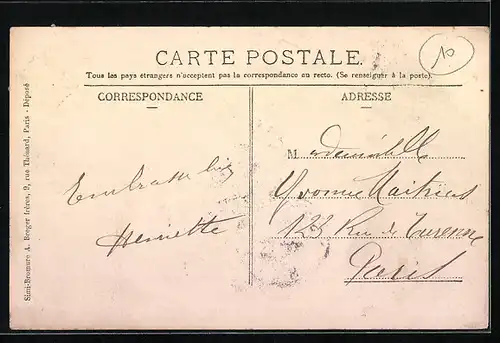 CARTE POSTALE.
Tous les pays étrangers n'acceptent pas la correspondance au recto. (Se renseigner à la poste).
CORRESPONDANCE
ADRESSE
10
Henriette
Mademoiselle
Yvonne Mathieu
122 Rue de Turenne
Paris
Simi-Bromure A. Breger frères, 9, rue Thénard, Paris - Déposé